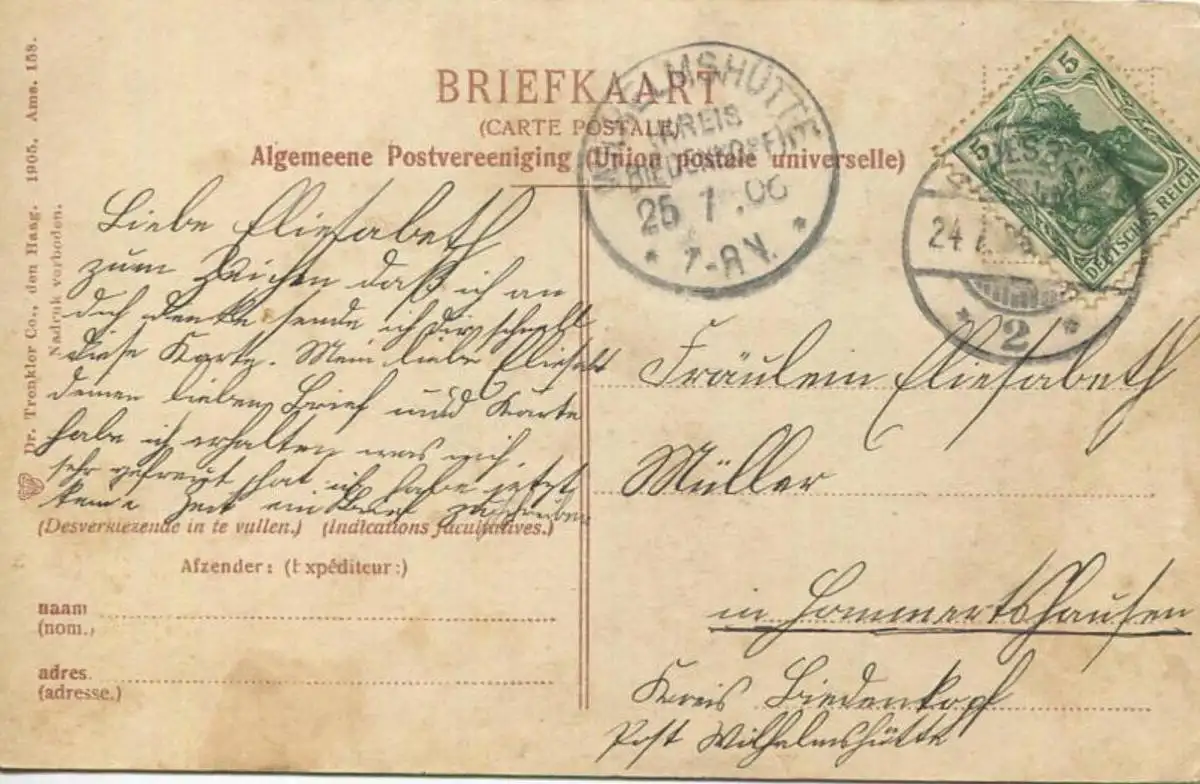 BRIEFKAART
(CARTE POSTALE)
Algemeene Postvereeniging (Union postale universelle)
Dr. Trenkler Co., den Haag. 1905. Ams. 158.
Nadruk verboden.
WILHELMSHÜTTE
(KREIS
BIEDENKOPF)
25 7 .06
* 7-8 V. *
5
5
DEUTSCHES REICH
24
* 2 *
Liebe Eliesabeth
zum Zeichen daß ich an
dich denke sende ich dir schnell
diese Karte. Mein liebe Eliesabt
deinen lieben Brief und Karte
habe ich erhalten was mich
sehr gefreut hat ich habe jetzt
keine Zeit ein Brief zu schreiben
(Desverkiezende in te vullen.) (Indications facultatives.)
Afzender: (Expéditeur:)
naam
(nom.)
adres.
(adresse.)
Fräulein Eliesabeth
Müller
in Hommertshausen
Kreis Biedenkopf
Post Wilhelmshütte